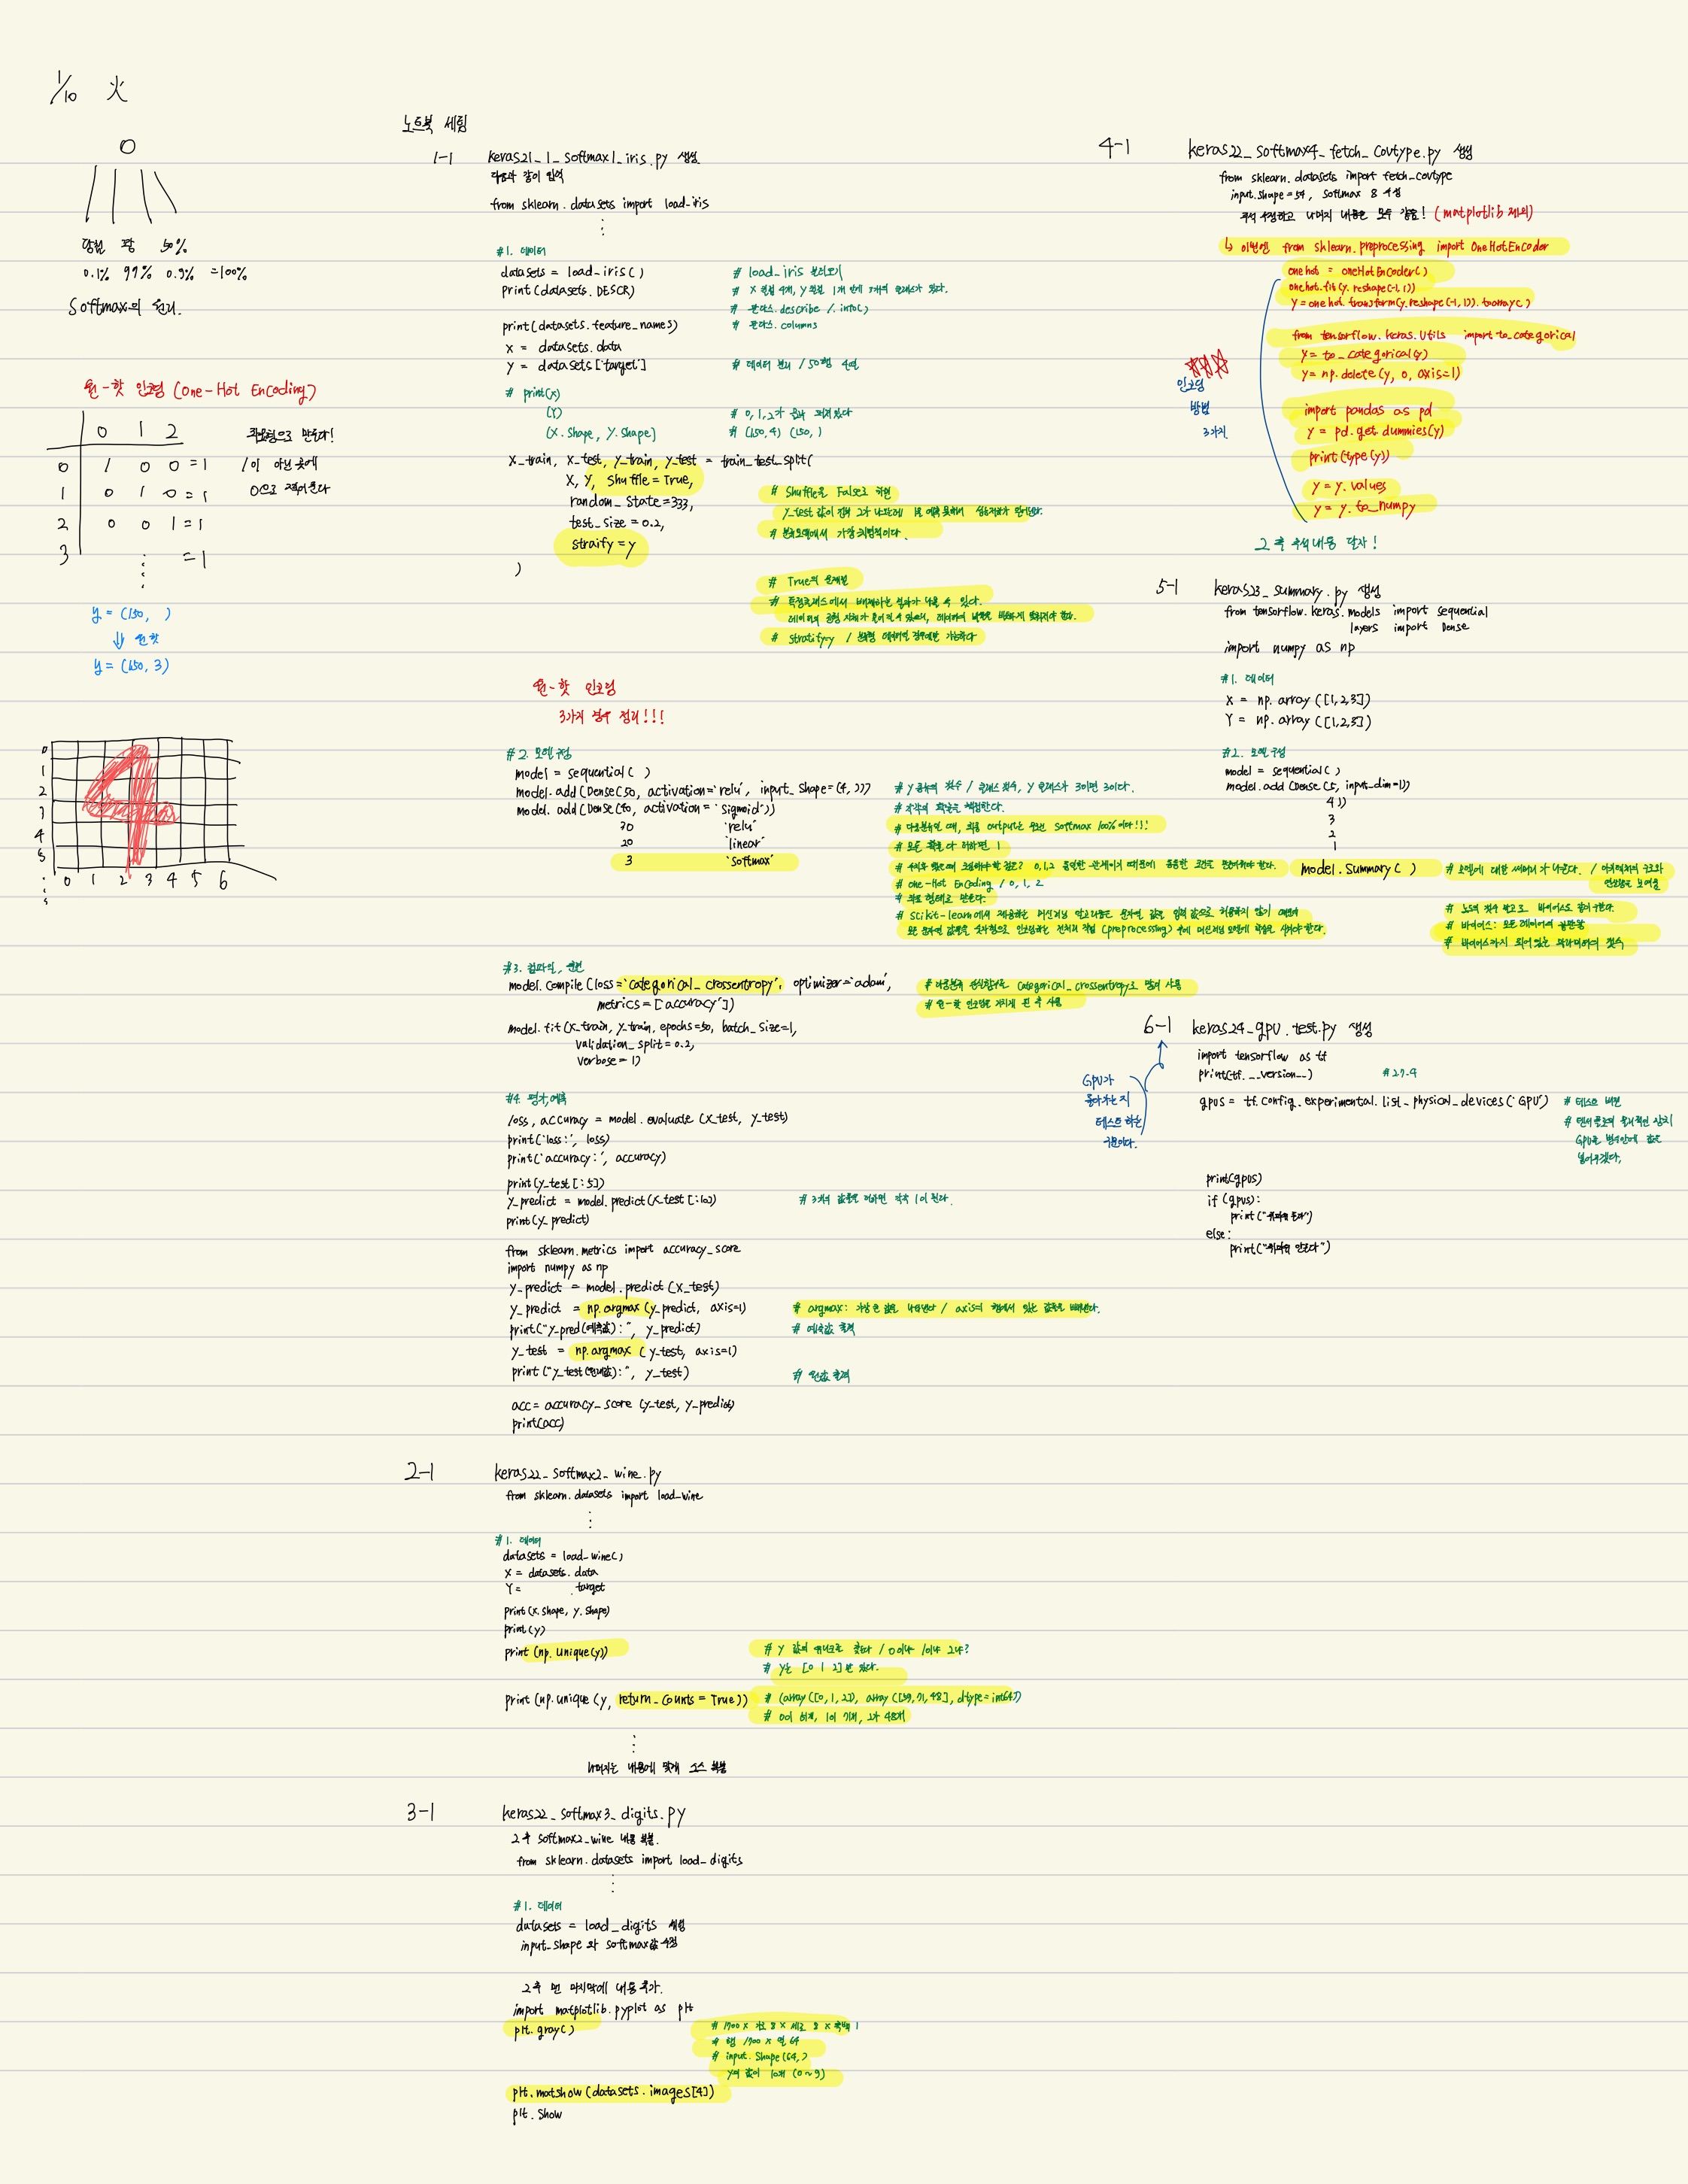 1/10 火
0
당첨 꽝 50%
0.1% 99% 0.9% =100%
Softmax의 원리.
원-핫 인코딩 (One-Hot Encoding)
0 1 2
0 1 0 0 =1
1 0 1 0 =1
2 0 0 1 =1
3 ⋮ =1
좌표형으로 만든다!
1이 아닌 곳에
0으로 적어준다
y = (150, )
⇓ 원핫
y = (150, 3)
0
1
2
3
4
5
⋮
0 1 2 3 4 5 6
4
노트북 세팅
1-1 keras21_1_softmax1_iris.py 생성
다음과 같이 입력
from sklearn.datasets import load_iris
⋮
#1. 데이터
datasets = load_iris() # load_iris 불러오기
print(datasets.DESCR)
# 판다스 .describe / .info()
print(datasets.feature_names) # 판다스 .columns
X = datasets.data
Y = datasets['target']
# print(x)
(Y)
(X.shape, Y.shape) # (150,4) (150, )
X_train, X_test, Y_train, Y_test = train_test_split(
X, Y, shuffle=True, # Shuffle을 False로 하면
random_state=333,
test_size=0.2,
straify=y
)
# True의 문제점
# 특정클래스에서 배제하는 결과가 나올 수 있다.
# stratifyy / 분류형 데이터인 경우에만 가능하다
원-핫 인코딩
3가지 방법 정리!!!
#2. 모델구성
model = sequential( )
model.add(Dense(50, activation='relu', input_shape=(4, )))
model.add(Dense(40, activation='sigmoid'))
30 'relu'
20 'linear'
3 'softmax'
# Y 클래스 갯수 3이면 3이다.
# 각각의 확률을 책정한다.
# 다중분류일 때, 최종 output은 무조건 softmax 100%이다!!!
# 모든 확률 다 더하면 1
# one-Hot Encoding / 0, 1, 2
# 좌표 형태로 만든다.
# scikit-learn에서 제공하는 머신러닝 알고리즘은 문자열 값을 입력 값으로 허용하지 않기 때문에
모든 문자열 값들을 숫자형으로 인코딩하는 전처리 작업 (preprocessing) 후에 머신러닝 모델에 학습을 시켜야 한다.
#3. 컴파일, 훈련
model.compile(loss='categorical_crossentropy', optimizer='adam',
metrics=['accuracy'])
# 원-핫 인코딩을 거치게 된 후 사용
model.fit(X_train, Y_train, epochs=50, batch_size=1,
validation_split=0.2,
verbose=1)
#4. 평가,예측
loss, accuracy = model.evaluate(X_test, y_test)
print('loss:', loss)
print('accuracy:', accuracy)
print(y_test[:5])
y_predict = model.predict(X_test[:10]) # 3개의 값들을 더하면 각각 1이 된다.
print(y_predict)
from sklearn.metrics import accuracy_score
import numpy as np
y_predict = model.predict(x_test)
y_predict = np.argmax(y_predict, axis=1)
print("y_pred(예측값):", y_predict) # 예측값 출력
y_test = np.argmax(y_test, axis=1)
print("y_test(원래값):", y_test) # 원값 출력
acc = accuracy_score(y_test, y_predict)
print(acc)
2-1 keras22_softmax2_wine.py
from sklearn.datasets import load_wine
⋮
#1. 데이터
datasets = load_wine()
X = datasets.data
Y = .target
print(x.shape, y.shape)
print(y)
print(np.unique(y)) # y 값의 유니크를 찾는다 / 0이냐 1이냐 2냐?
# y는 [0 1 2]만 있다.
print(np.unique(y, return_counts=True)) # (array([0,1,2]), array([59,71,48], dtype=int64))
⋮
나머지는 내용에 맞게 소스 복붙
3-1 keras22_softmax3_digits.py
2축 softmax2_wine 내용 복붙.
from sklearn.datasets import load_digits
⋮
#1. 데이터
datasets = load_digits 세팅
input_shape 와 softmax값 수정
2축 맨 마지막에 내용추가.
import matplotlib.pyplot as plt
plt.gray()
# input.shape(64, )
y의 값이 10개 (0~9)
plt.matshow(datasets.images[4])
plt.show
4-1 keras22_softmax4_fetch_covtype.py 생성
from sklearn.datasets import fetch_covtype
input.shape=54, softmax 8 수정
주석 수정하고 나머지 내용은 모두 같음! (matplotlib 제외)
↳ 이번엔 from sklearn.preprocessing import OneHotEncoder
onehot = oneHotEncoder()
onehot.fit(y.reshape(-1,1))
Y = onehot.transform(y.reshape(-1,1)).toarray()
from tensorflow.keras.utils import to_categorical
y = to_categorical(y)
y = np.delete(y, 0, axis=1)
import pandas as pd
y = pd.get.dummies(y)
print(type(y))
y = y.values
y = y.to_numpy
☆☆☆
인코딩
방법
3가지
2축 주석내용 달자!
5-1 keras23_summary.py 생성
from tensorflow.keras.models import sequential
layers import Dense
import numpy as np
#1. 데이터
X = np.array([1,2,3])
Y = np.array([1,2,3])
#2. 모델구성
model = sequential( )
model.add(Dense(5, input_dim=1))
4))
3
2
1
model.summary( )
6-1 keras24_gpu.test.py 생성
import tensorflow as tf
print(tf.__version__) # 2.7.4
gpus = tf.config.experimental.list_physical_devices('GPU') # 테스트 버전
GPU를 변수안에 값을
넣어주겠다.
GPU가
돌아가는지
테스트 하는
구문이다.
print(gpus)
if (gpus):
print("쥐피유 돈다")
else:
print("쥐피유 안돈다")